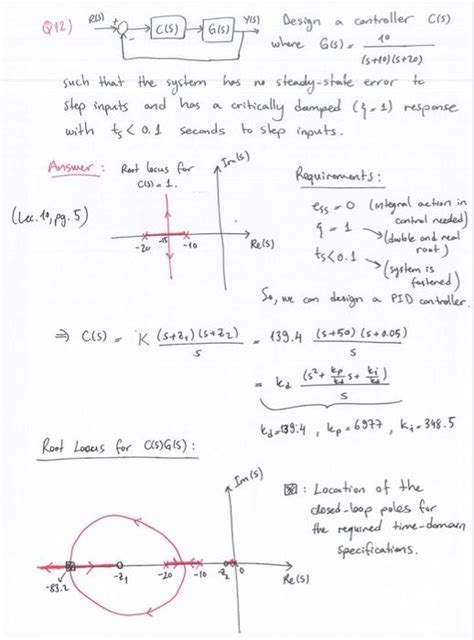 Q12) R(s) + - C(s) G(s) Y(s) Design a controller C(s)
where G(s) = 10 / (s+10)(s+20)
such that the system has no steady-state error to
step inputs and has a critically damped (ζ = 1) response
with ts < 0.1 seconds to step inputs.
Answer : Root locus for
C(s) = 1.
Im(s)
(Lec. 10, pg. 5)
-20 -15 -10 Re(s)
Requirements :
ess = 0 (integral action in
control needed)
ζ = 1 (double and real
root)
ts < 0.1 (system is
fastened)
So, we can design a PID controller.
⇒ C(s) = K (s+z1)(s+z2) / s = 139.4 (s+50)(s+0.05) / s
= kd (s² + kp/kd s + ki/kd) / s
kd = 139.4 , kp = 6977 , ki = 348.5
Root Locus for C(s)G(s) :
Im(s)
: Location of the
closed-loop poles for
the required time-domain
specifications.
-83.2 -z1 -20 -10 -z2 0 Re(s)